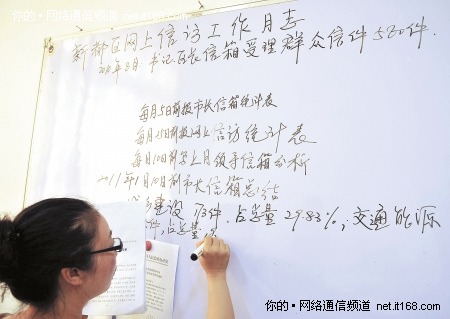 你的·网络通信频道 net.it168.com
新都区网上信访工作月志
2011年3月 书记区长信箱受理群众信件580件.
每月5日前报市长信箱统计表
每月25日前报网上信访统计表
每月10日前写上月领导信箱分析
2011年1月10日前市长信箱总结
建设 173件. 占总量 29.83%; 交通能源
件, 占总量
你的·网络通信频道 net.it168.com